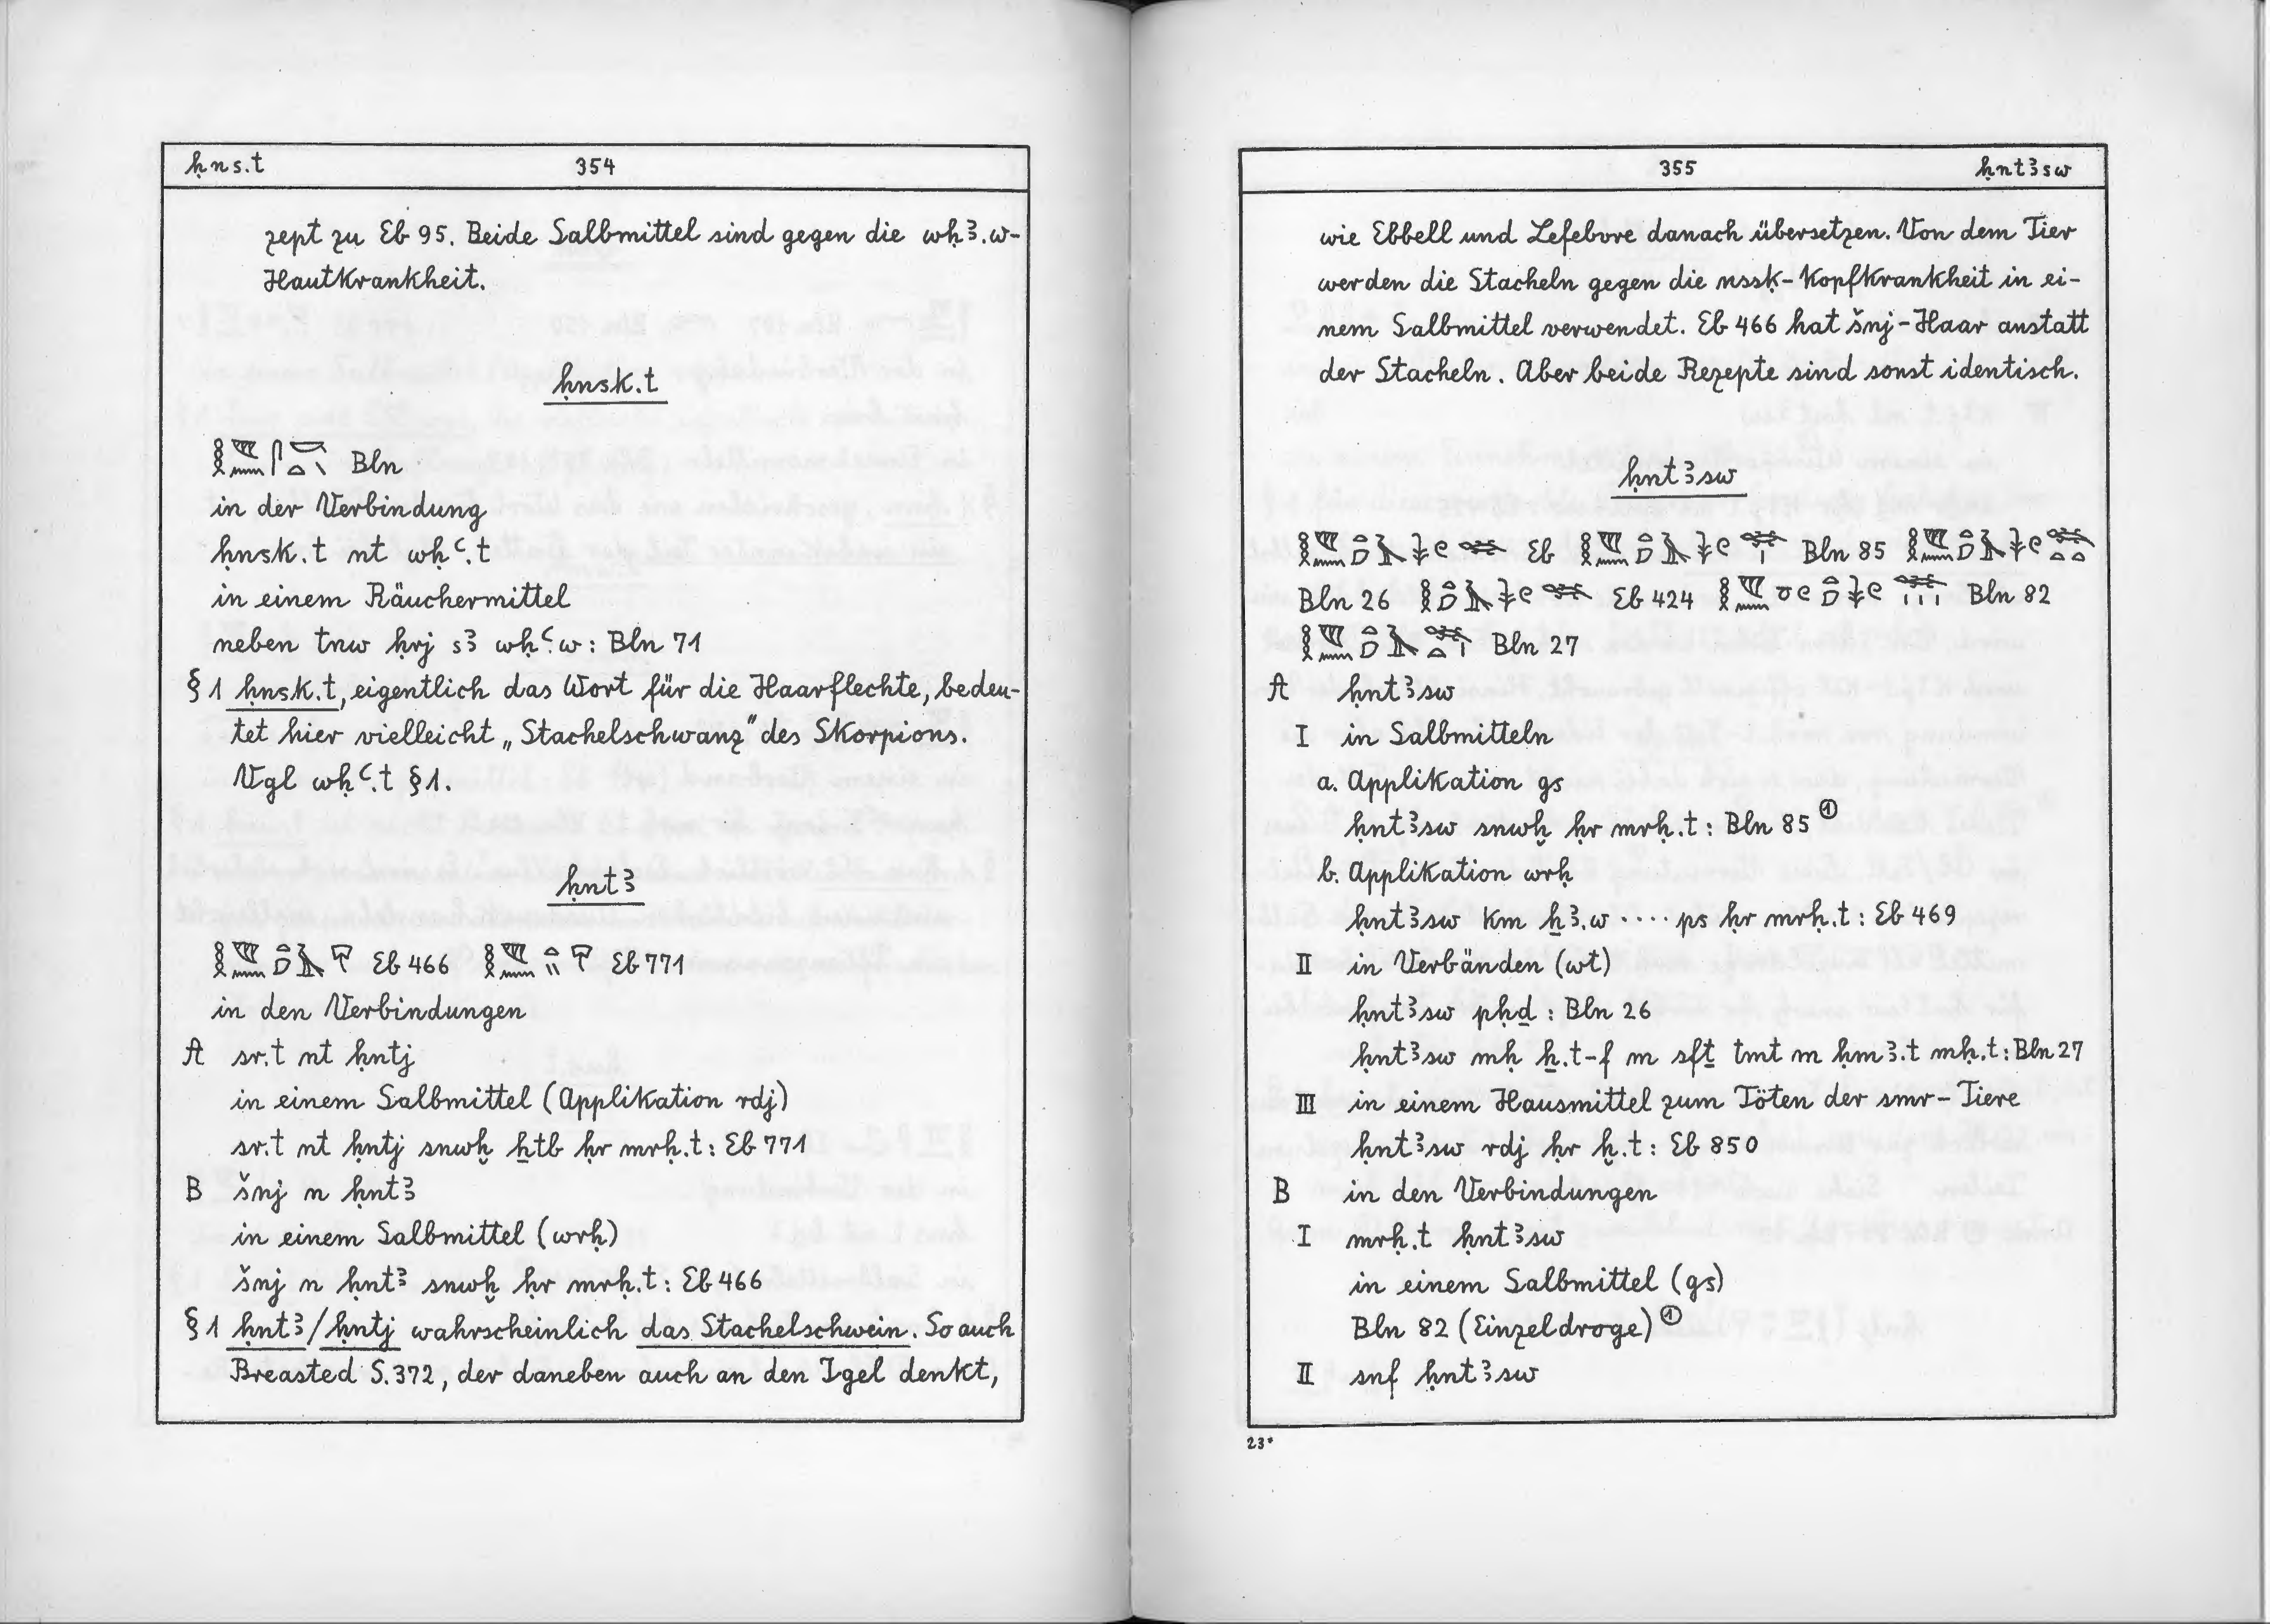 ḥns.t 354
zept zu Eb 95. Beide Salbmittel sind gegen die wḥꜣ.w-
Hautkrankheit.
ḥnsk.t
Bln
in der Verbindung
ḥnsk.t nt wḥꜥ.t
in einem Räuchermittel
neben tnw ḥrj sꜣ wḥꜥ.w: Bln 71
§ 1 ḥnsk.t, eigentlich das Wort für die Haarflechte, bedeu-
tet hier vielleicht „Stachelschwanz" des Skorpions.
Vgl wḥꜥ.t § 1.
ḥntꜣ
Eb 466 Eb 771
in den Verbindungen
A sr.t nt ḥntj
in einem Salbmittel (Applikation rdj)
sr.t nt ḥntj snwḫ ẖtb ḥr mrḥ.t: Eb 771
B šnj n ḥntꜣ
in einem Salbmittel (wrḥ)
šnj n ḥntꜣ snwḫ ḥr mrḥ.t: Eb 466
§ 1 ḥntꜣ/ḥntj wahrscheinlich das Stachelschwein. So auch
Breasted S. 372, der daneben auch an den Igel denkt,
355 ḥntꜣsw
wie Ebbell und Lefebvre danach übersetzen. Von dem Tier
werden die Stacheln gegen die nssḳ-Kopfkrankheit in ei-
nem Salbmittel verwendet. Eb 466 hat šnj-Haar anstatt
der Stacheln. Aber beide Rezepte sind sonst identisch.
ḥntꜣsw
Eb Bln 85
Bln 26 Eb 424 Bln 82
Bln 27
A ḥntꜣsw
I in Salbmitteln
a. Applikation gs
ḥntꜣsw snwḫ ḥr mrḥ.t: Bln 85 ①
b. Applikation wrḥ
ḥntꜣsw km ẖꜣ.w .... ps ḥr mrḥ.t: Eb 469
II in Verbänden (wt)
ḥntꜣsw pḥḏ: Bln 26
ḥntꜣsw mḥ ẖ.t-f m sfṯ tmt m ḥmꜣ.t mḥ.t: Bln 27
III in einem Hausmittel zum Töten der smr-Tiere
ḥntꜣsw rdj ḥr ḫ.t: Eb 850
B in den Verbindungen
I mrḥ.t ḥntꜣsw
in einem Salbmittel (gs)
Bln 82 (Einzeldroge) ①
II snf ḥntꜣsw
23*